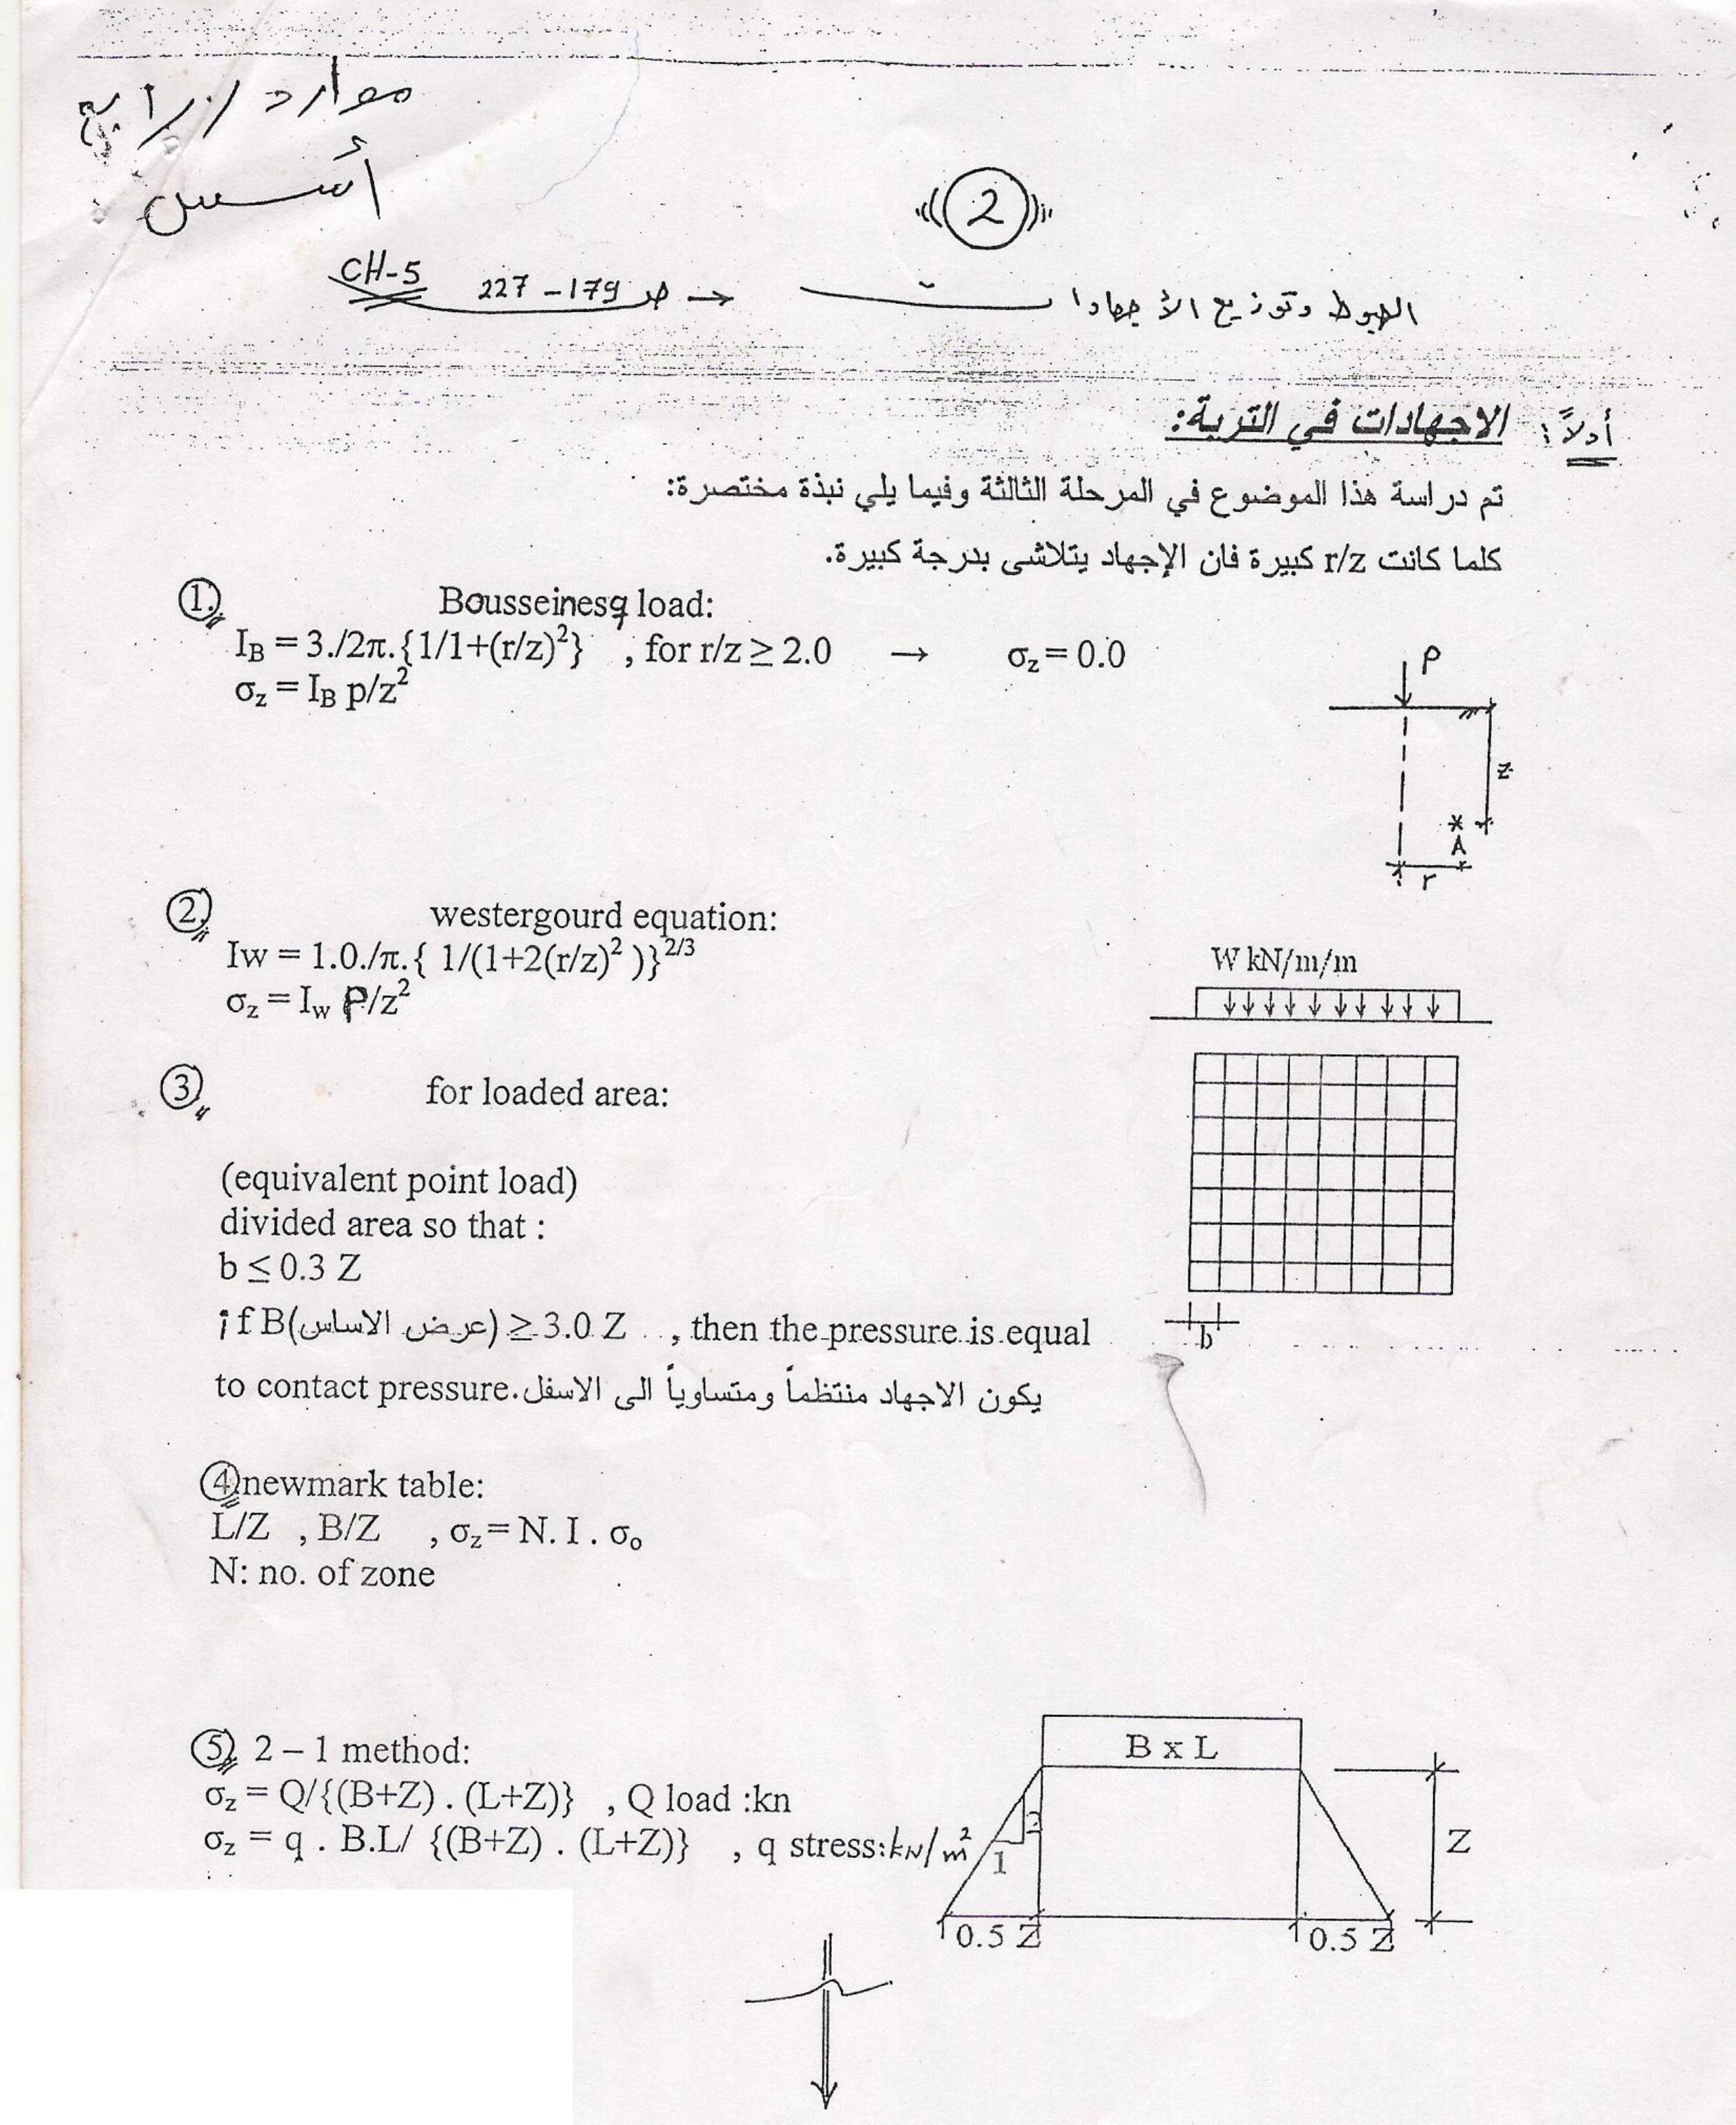 موارد / رابع
أسس
2
الهبوط وتوزيع الأجهادات → ص 179 – 227 CH-5
أولاً : الاجهادات في التربة:
تم دراسة هذا الموضوع في المرحلة الثالثة وفيما يلي نبذة مختصرة:
كلما كانت r/z كبيرة فان الإجهاد يتلاشى بدرجة كبيرة.
1. Bousseinesq load:
I_B = 3./2π.{1/1+(r/z)²} , for r/z ≥ 2.0 → σ_z = 0.0
σ_z = I_B p/z²
P
z
A
r
2. westergourd equation:
Iw = 1.0./π.{ 1/(1+2(r/z)² )}^2/3
σ_z = I_w P/z²
W kN/m/m
3. for loaded area:
(equivalent point load)
divided area so that :
b ≤ 0.3 Z
if B(عرض الاساس) ≥ 3.0 Z , then the pressure is equal
to contact pressure. يكون الاجهاد منتظماً ومتساوياً الى الاسفل
b
4. newmark table:
L/Z , B/Z , σ_z = N. I . σ_o
N: no. of zone
5. 2 – 1 method:
σ_z = Q/{(B+Z) . (L+Z)} , Q load :kn
σ_z = q . B.L/ {(B+Z) . (L+Z)} , q stress:kN/m²
B x L
2
1
Z
0.5 Z
0.5 Z